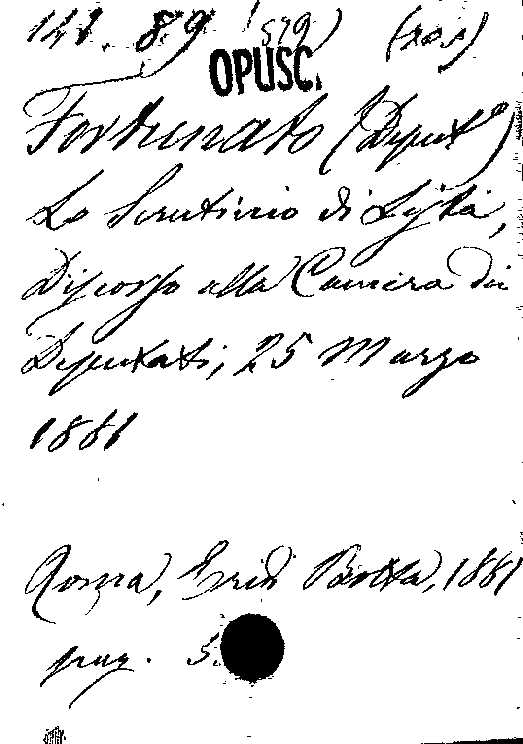 141. 89 (579) (ros)
OPUSC.
Fortunato (Deput°)
Lo Scrutinio di Lista,
Discorso alla Camera dei
Deputati, 25 Marzo
1881
Roma, Eredi Botta, 1881
pag. 5